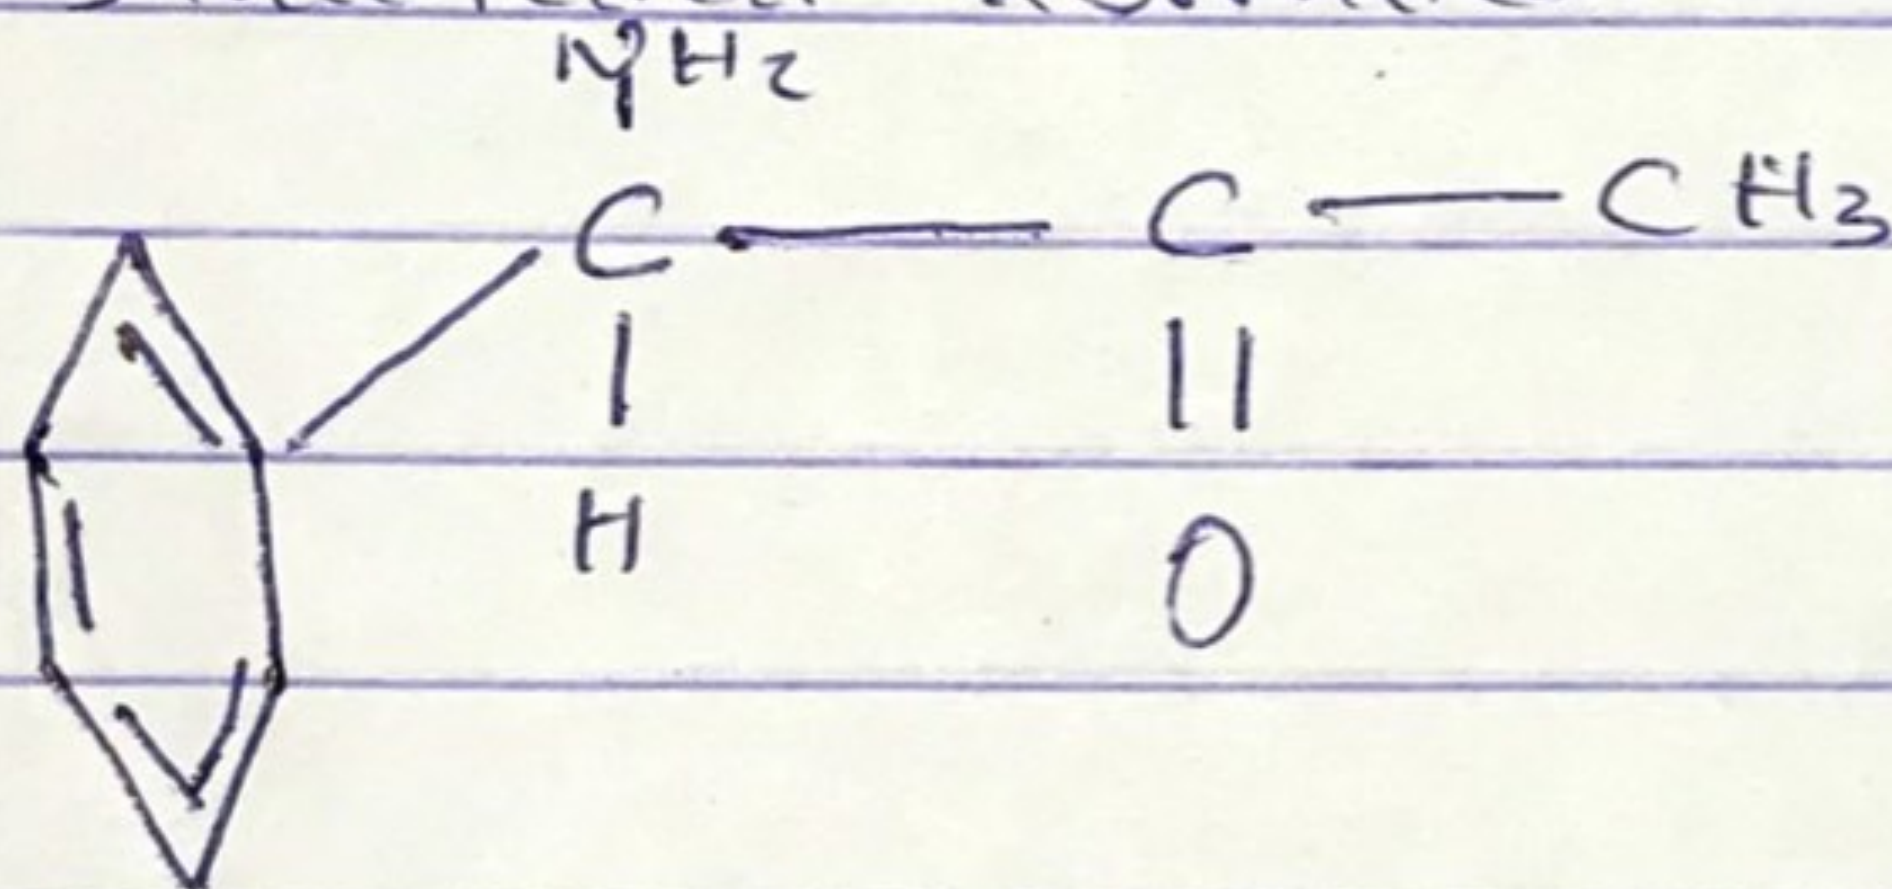 NH2
C C CH3
H O